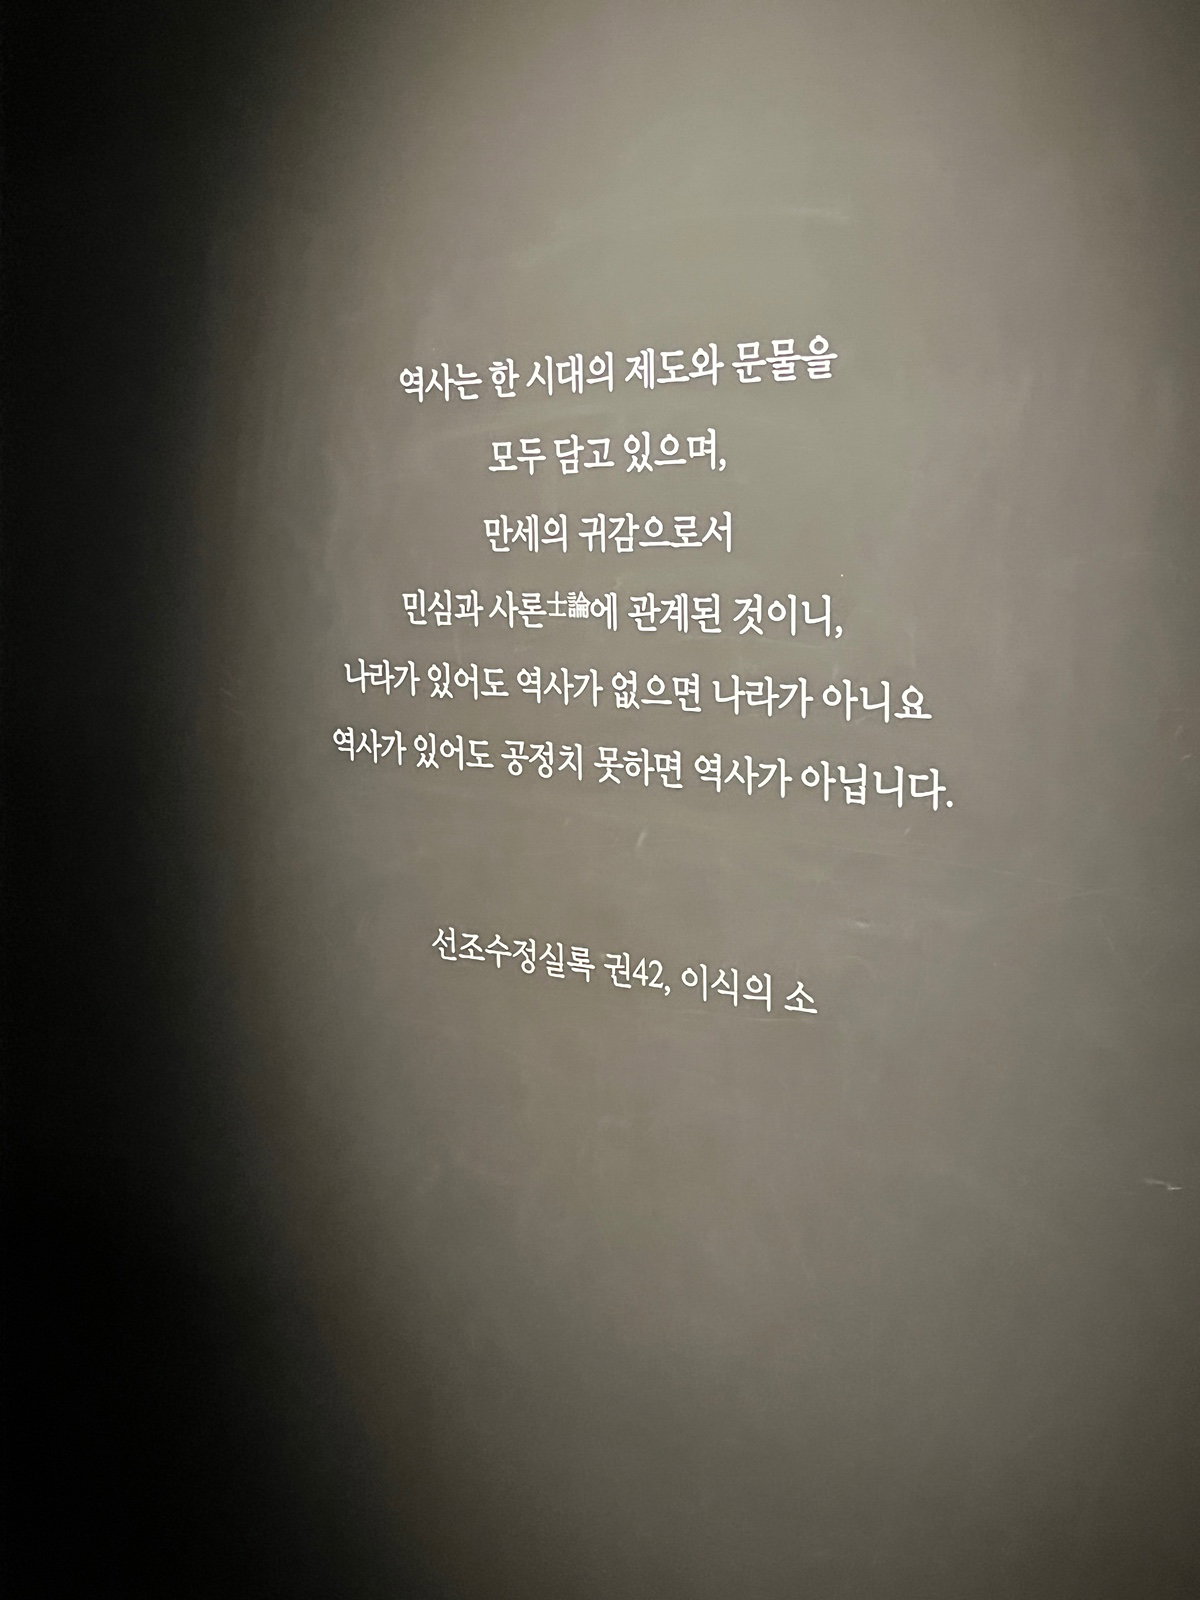 역사는 한 시대의 제도와 문물을
모두 담고 있으며,
만세의 귀감으로서
민심과 사론士論에 관계된 것이니,
나라가 있어도 역사가 없으면 나라가 아니요
역사가 있어도 공정치 못하면 역사가 아닙니다.
선조수정실록 권42, 이식의 소